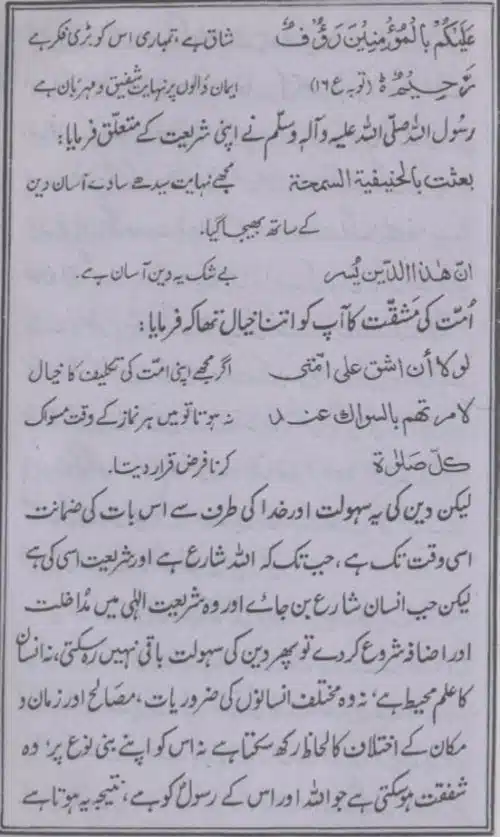 عَلَيْكُمْ بِالْمُؤْمِنِيْنَ رَؤُفٌ شاق ہے، تمہاری اس کو بڑی فکر ہے
رَّحِيْمٌ ۃ (توبہ ع ۱۶) ایمان والوں پر نہایت شفیق و مہربان ہے
رسول اللہ صلی اللہ علیہ وآلہٖ وسلم نے اپنی شریعت کے متعلق فرمایا:
بعثت بالحنیفیة السمحة مجھے نہایت سیدھے سادے آسان دین
کے ساتھ بھیجا گیا۔
انّ هٰذا الدّین یُسر بے شک یہ دین آسان ہے۔
اُمّت کی مَشقّت کا آپ کو اتنا خیال تھا کہ فرمایا:
لو لا أن اشق علی امّتی اگر مجھے اپنی امت کی تکلیف کا خیال
لامرتهم بالسواك عند نہ ہوتا تو میں ہر نماز کے وقت مسواک
کلّ صلوٰة کرنا فرض قرار دیتا۔
لیکن دین کی یہ سہولت اور خدا کی طرف سے اس بات کی ضمانت
اسی وقت تک ہے، جب تک کہ اللہ شارع ہے اور شریعت اسی کی ہے
لیکن جب انسان شارع بن جائے اور وہ شریعت الٰہی میں مُداخلت
اور اضافہ شروع کردے تو پھر دین کی سہولت باقی نہیں رہ سکتی، نہ انسان
کا علم محیط ہے، نہ وہ مختلف انسانوں کی ضروریات، مصالح اور زمان و
مکان کے اختلاف کا لحاظ رکھ سکتا ہے نہ اس کو اپنے بنی نوع پر وہ
شفقت ہوسکتی ہے جو اللہ اور اس کے رسولؐ کو ہے، نتیجہ یہ ہوتا ہے